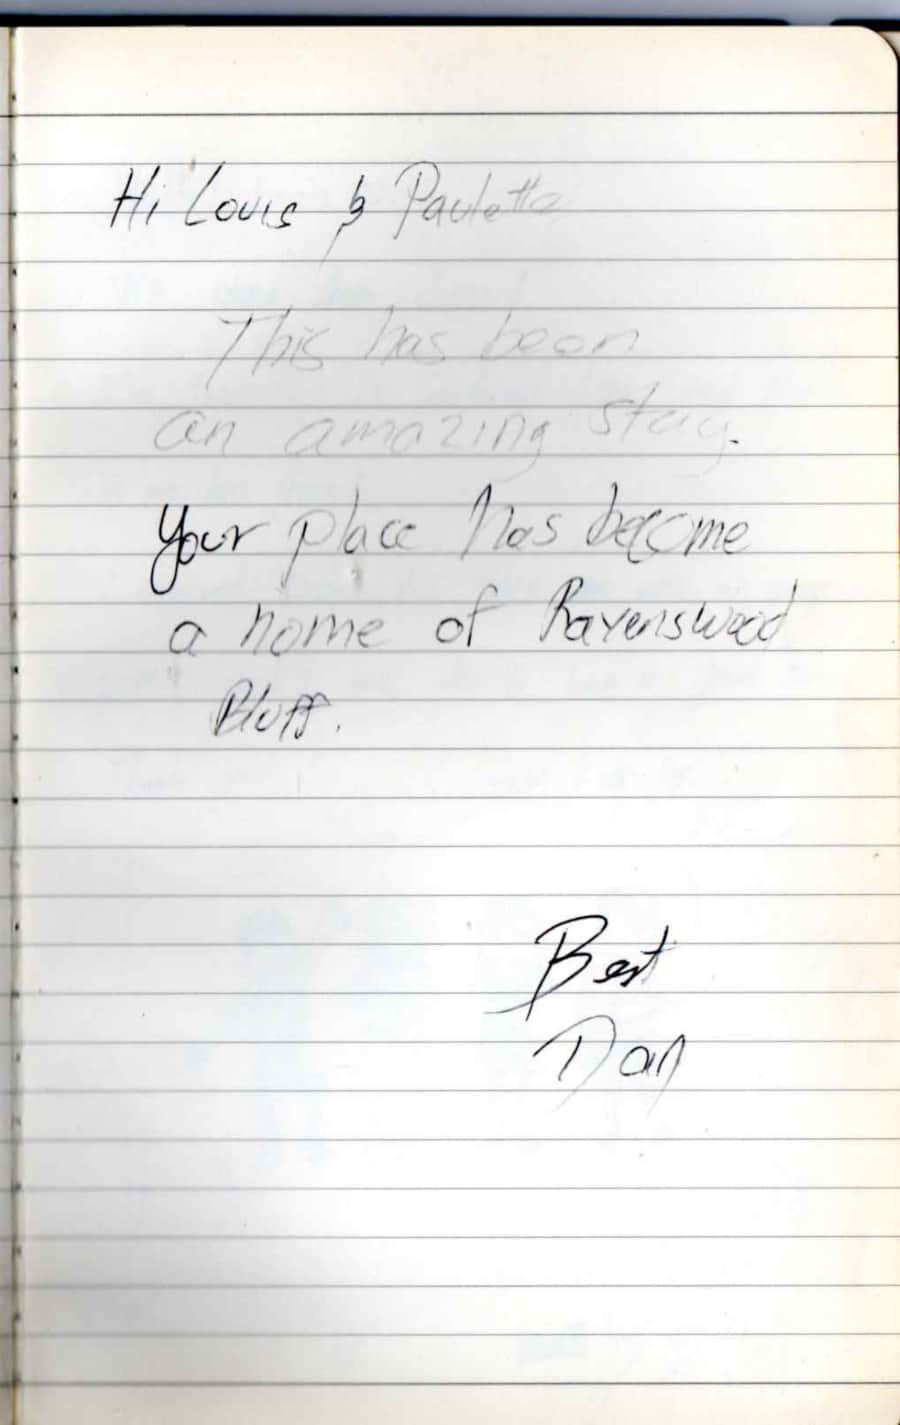 Hi Louis & Paulette
This has been
an amazing stay.
Your place has become
a home of Ravenswood
Bluff.
Best
Dan